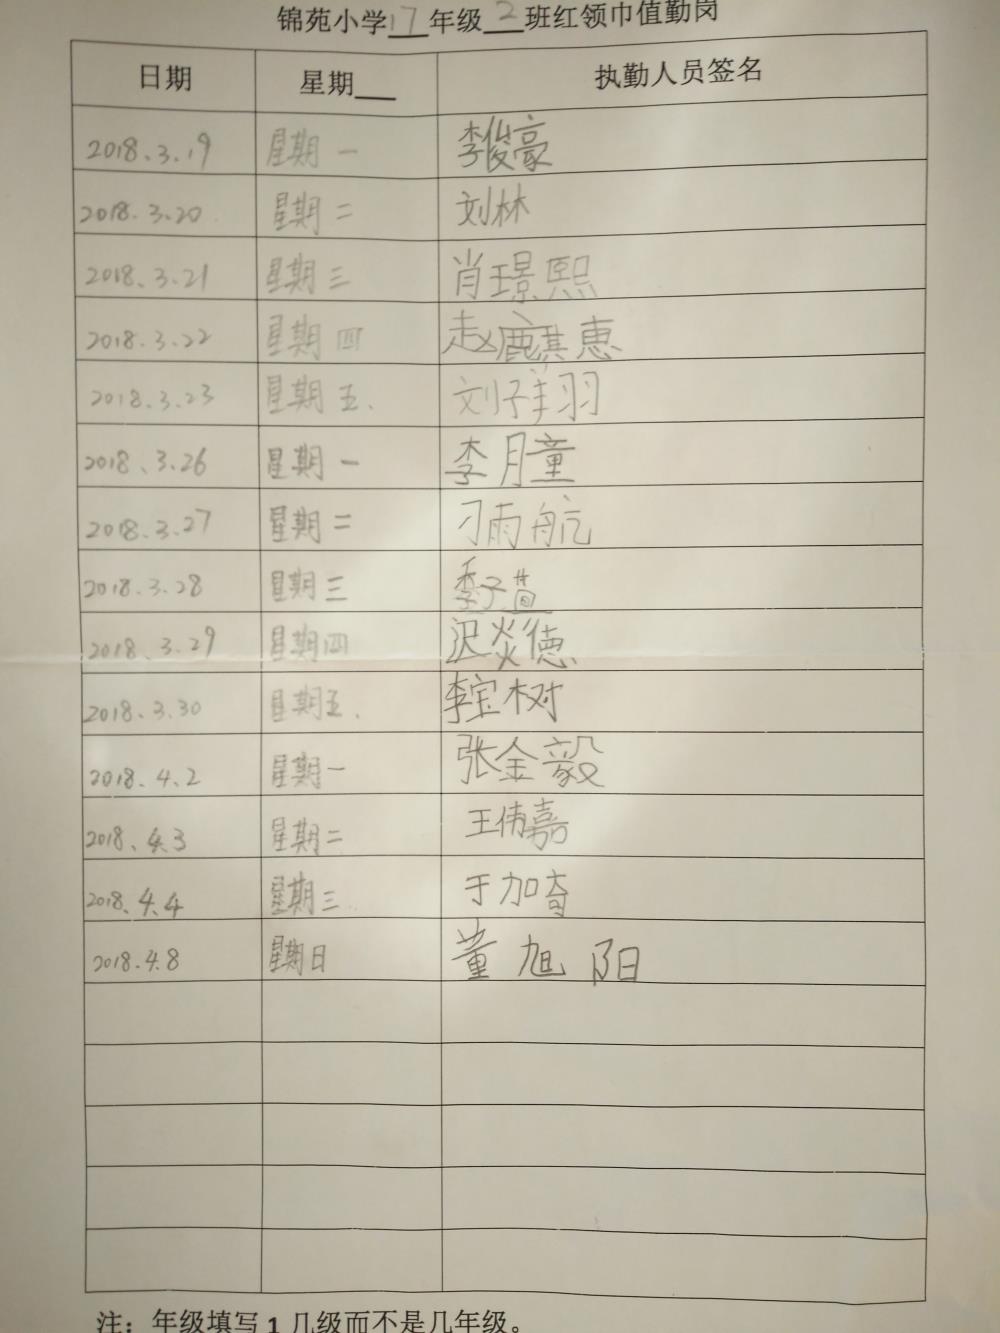 锦苑小学17年级2班红领巾值勤岗
日期 星期 执勤人员签名
2018.3.19 星期一 李俊豪
2018.3.20 星期二 刘林
2018.3.21 星期三 肖璟熙
2018.3.22 星期四 赵麒惠
2018.3.23 星期五. 刘子羊羽
2018.3.26 星期一 李月童
2018.3.27 星期二 刁雨航
2018.3.28 星期三 季子茴
2018.3.29 星期四 迟炎德
2018.3.30 星期五. 李宝树
2018.4.2 星期一 张金毅
2018.4.3 星期二 王伟嘉
2018.4.4 星期三 于加奇
2018.4.8 星期日 董旭阳
注：年级填写1几级而不是几年级。